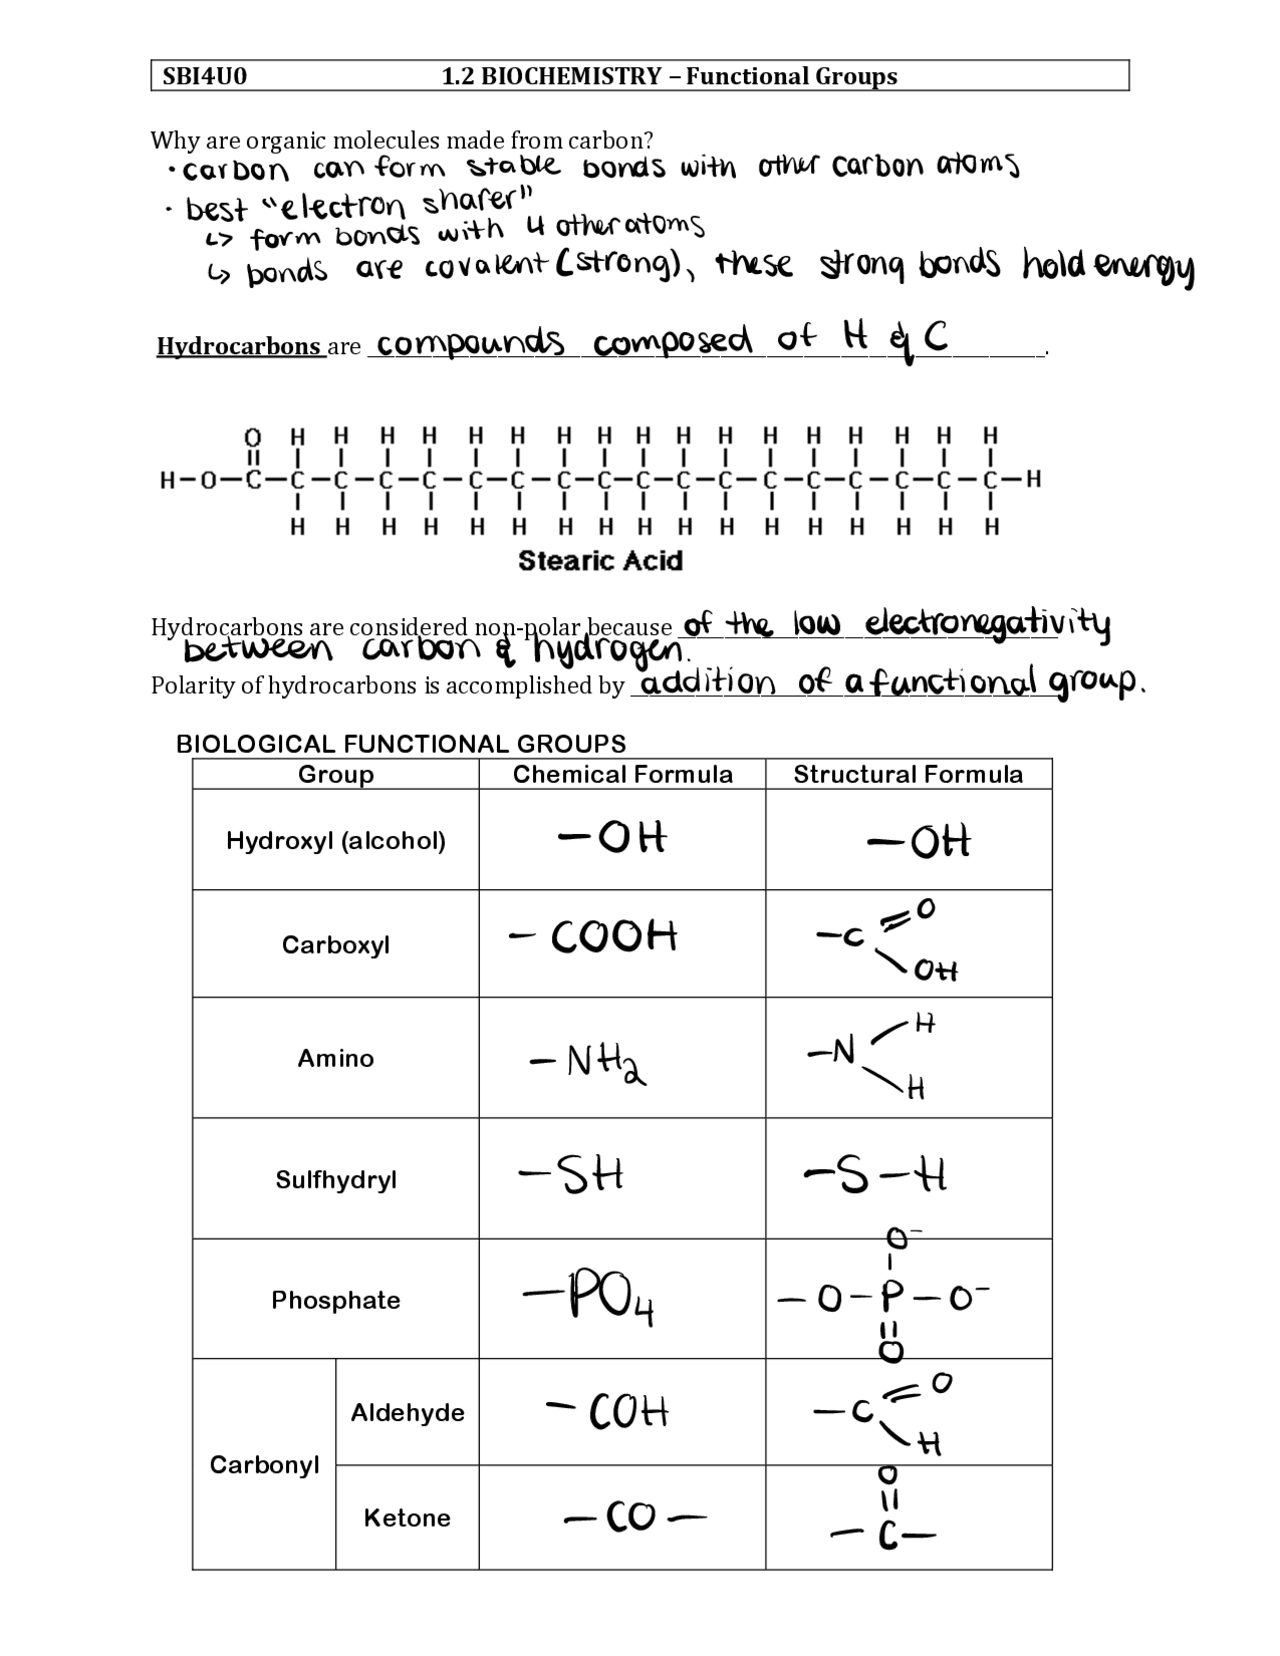 SBI4U0 1.2 BIOCHEMISTRY – Functional Groups
Why are organic molecules made from carbon?
• carbon can form stable bonds with other carbon atoms
• best "electron sharer"
↳ form bonds with 4 other atoms
↳ bonds are covalent (strong), these strong bonds hold energy
Hydrocarbons are compounds composed of H & C.
O H H H H H H H H H H H H H H H H H
H–O–C–C–C–C–C–C–C–C–C–C–C–C–C–C–C–C–C–C–H
H H H H H H H H H H H H H H H H H
Stearic Acid
Hydrocarbons are considered non-polar because of the low electronegativity
between carbon & hydrogen.
Polarity of hydrocarbons is accomplished by addition of a functional group.
BIOLOGICAL FUNCTIONAL GROUPS
Group Chemical Formula Structural Formula
Hydroxyl (alcohol) –OH –OH
Carboxyl –COOH –C=O OH
Amino –NH₂ –N H H
Sulfhydryl –SH –S–H
O⁻
Phosphate –PO₄ –O–P–O⁻
O
Carbonyl
Aldehyde –COH –C=O H
O
Ketone –CO– –C–